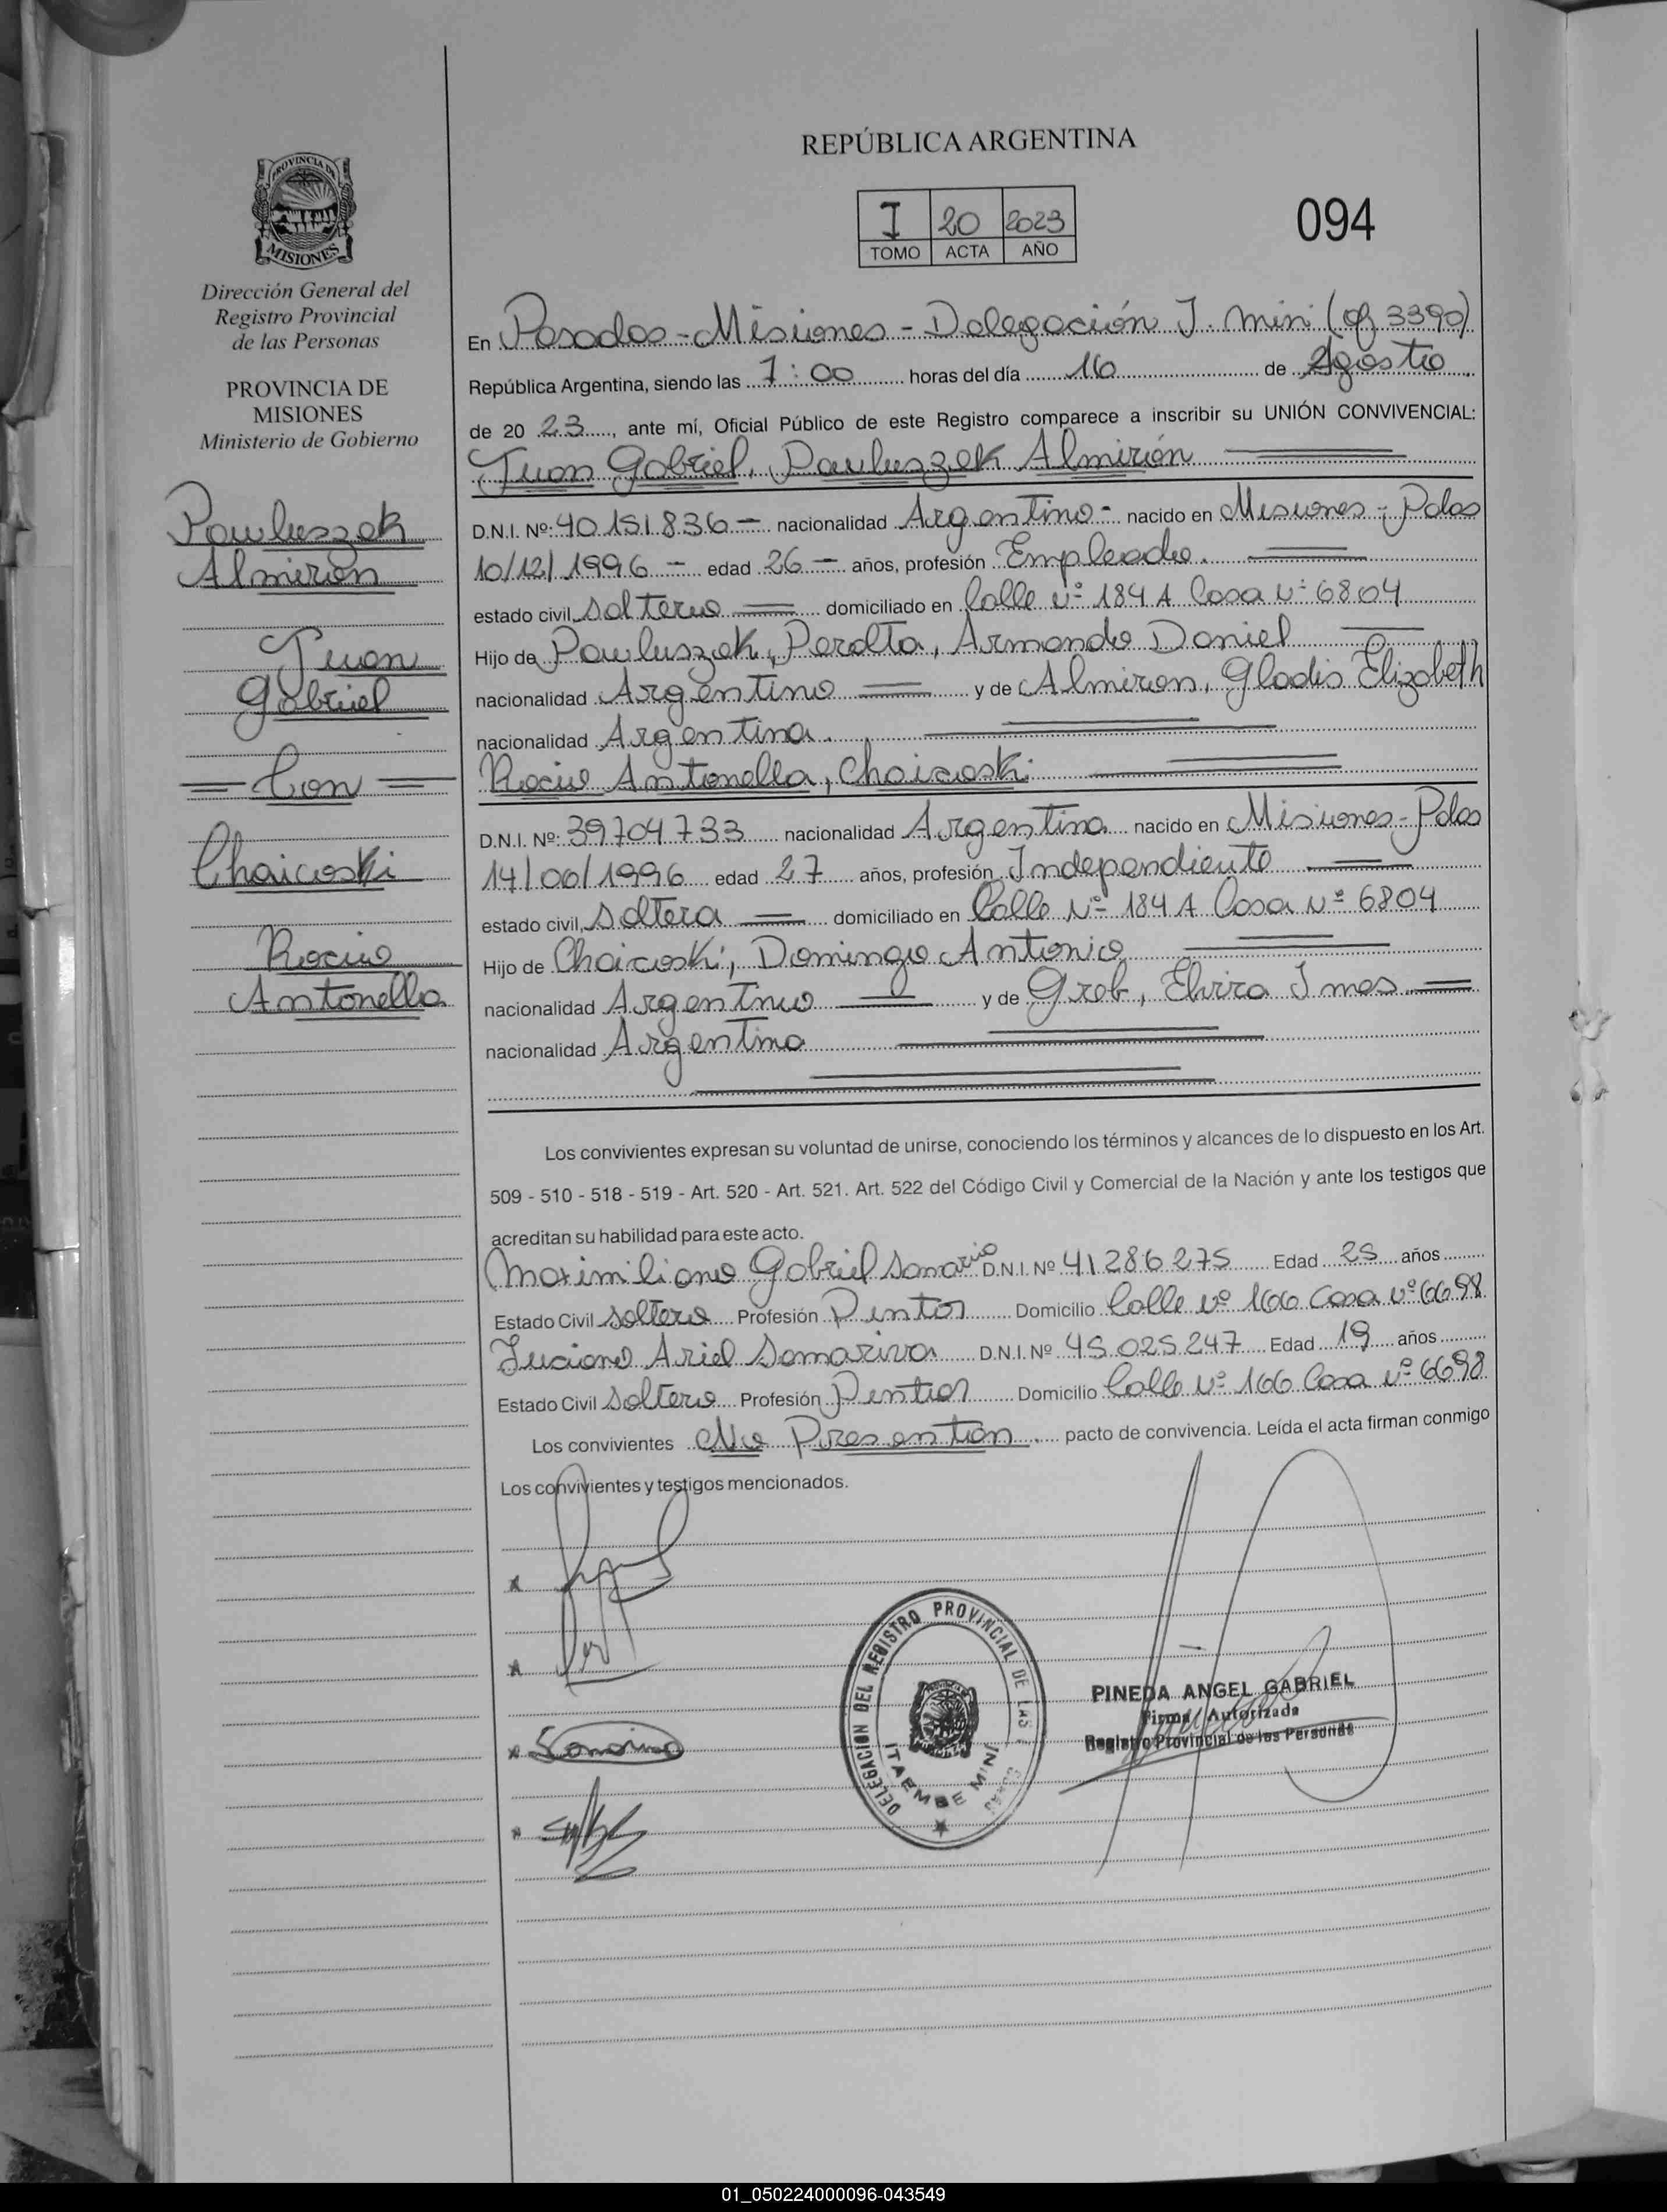 REPÚBLICA ARGENTINA
I 20 2023
TOMO ACTA AÑO
094
PROVINCIA DE
MISIONES
Dirección General del
Registro Provincial
de las Personas
PROVINCIA DE
MISIONES
Ministerio de Gobierno
Pawluszek
Almirón
Juan
Gabriel
Con
Chaicoski
Rocio
Antonella
En Posadas - Misiones - Delegación I. Mini (of 3390)
República Argentina, siendo las 7:00 horas del día 16 de Agosto
de 20 23, ante mí, Oficial Público de este Registro comparece a inscribir su UNIÓN CONVIVENCIAL:
Juan Gabriel, Pawluszek Almirón
D.N.I. Nº: 40.151.836 - nacionalidad Argentino - nacido en Misiones - Pdas
10/12/1996 - edad 26 - años, profesión Empleado.
estado civil, soltero domiciliado en Calle Nº 184 A Casa Nº 6804
Hijo de Pawluszek, Peralta, Armando Daniel
nacionalidad Argentino y de Almiron, Gladis Elizabeth
nacionalidad Argentina.
Rocio Antonella, Chaicoski
D.N.I. Nº: 39704.733 nacionalidad Argentina nacido en Misiones - Pdas
14/06/1996 edad 27 años, profesión Independiente
estado civil, soltera domiciliado en Calle Nº 184 A Casa Nº 6804
Hijo de Chaicoski, Domingo Antonio
nacionalidad Argentino y de Greb, Elvira Ines
nacionalidad Argentina
Los convivientes expresan su voluntad de unirse, conociendo los términos y alcances de lo dispuesto en los Art.
509 - 510 - 518 - 519 - Art. 520 - Art. 521. Art. 522 del Código Civil y Comercial de la Nación y ante los testigos que
acreditan su habilidad para este acto.
Maximiliano Gabriel D.N.I. Nº 41286275 Edad 25 años
Estado Civil soltero Profesión Pintor Domicilio Calle Nº 166 Casa Nº 6698
Luciano Ariel Samariva D.N.I. Nº 45.025.247 Edad 19 años
Estado Civil soltero Profesión Pintor Domicilio Calle Nº 166 Casa Nº 6698
Los convivientes No Presentan pacto de convivencia. Leída el acta firman conmigo
Los convivientes y testigos mencionados.
DELEGACION DEL REGISTRO PROVINCIAL DE LAS
ITAEMBE MINI
PINEDA ANGEL GABRIEL
Firma Autorizada
Registro Provincial de las Personas
01_050224000096-043549